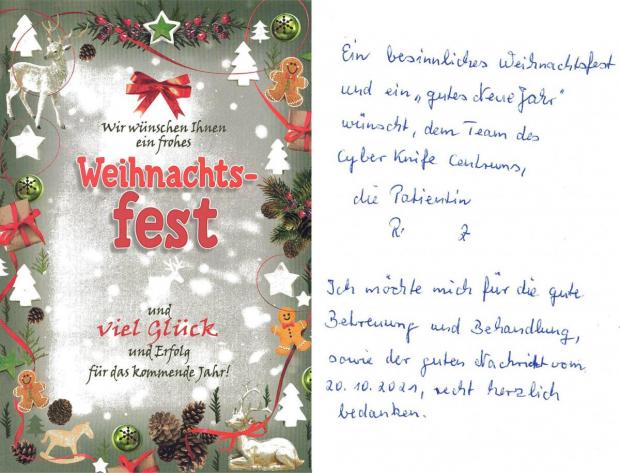 Wir wünschen Ihnen
ein frohes
Weihnachts-
fest
und
viel Glück
und Erfolg
für das kommende Jahr!
Ein besinnliches Weihnachtsfest
und ein „gutes Neue Jahr"
wünscht, dem Team des
Cyber Knife Centrums,
die Patientin
R. Z
Ich möchte mich für die gute
Betreuung und Behandlung,
sowie der guten Nachricht vom
20.10.2021, recht herzlich
bedanken.